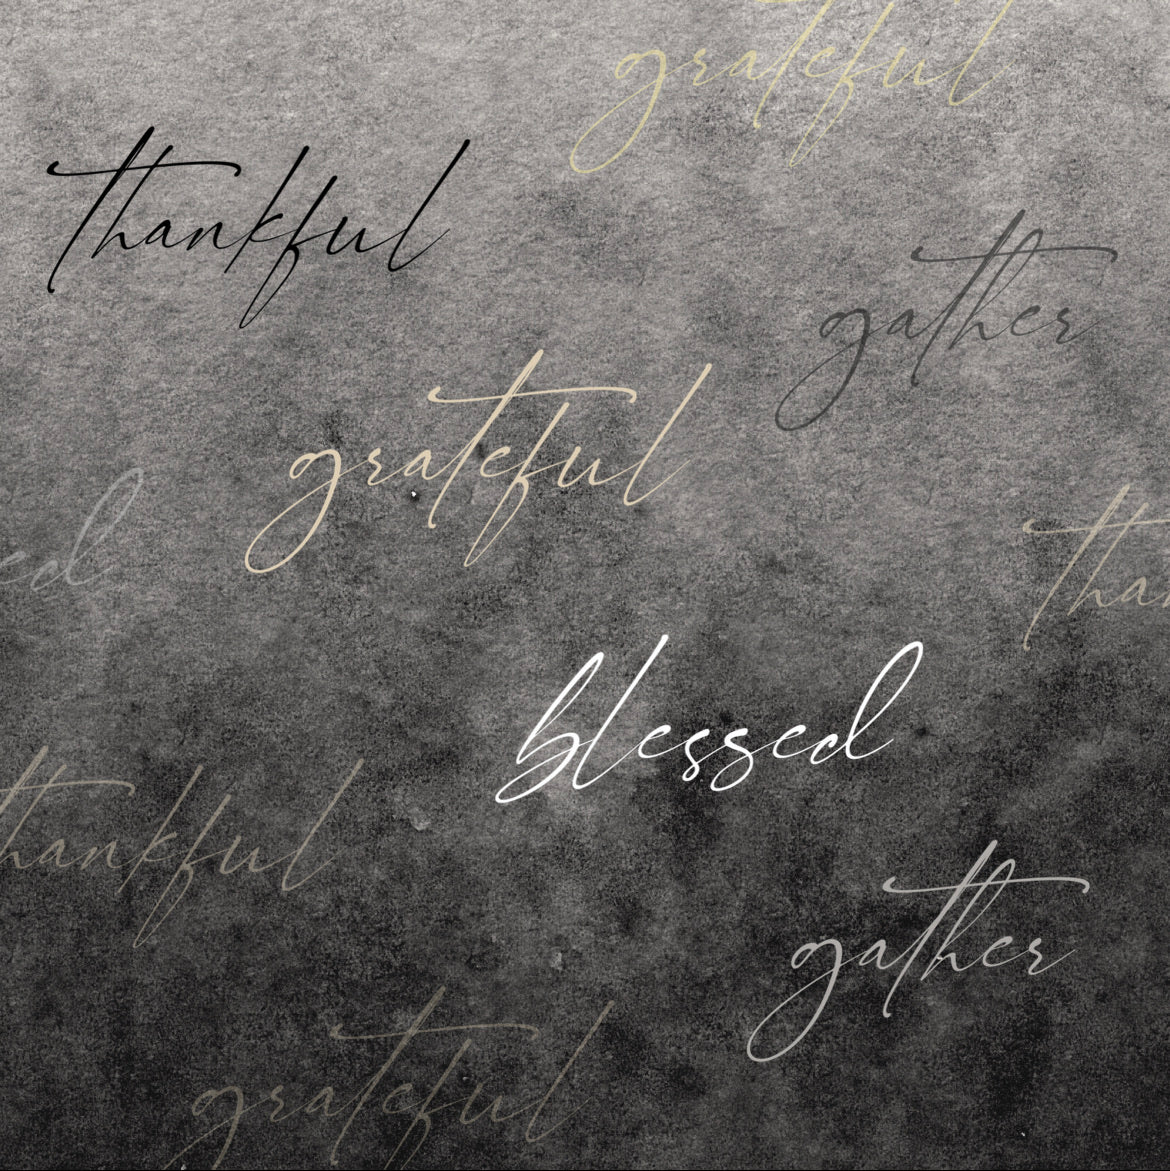 grateful
thankful
gather
grateful
ed
than
blessed
thankful
gather
grateful